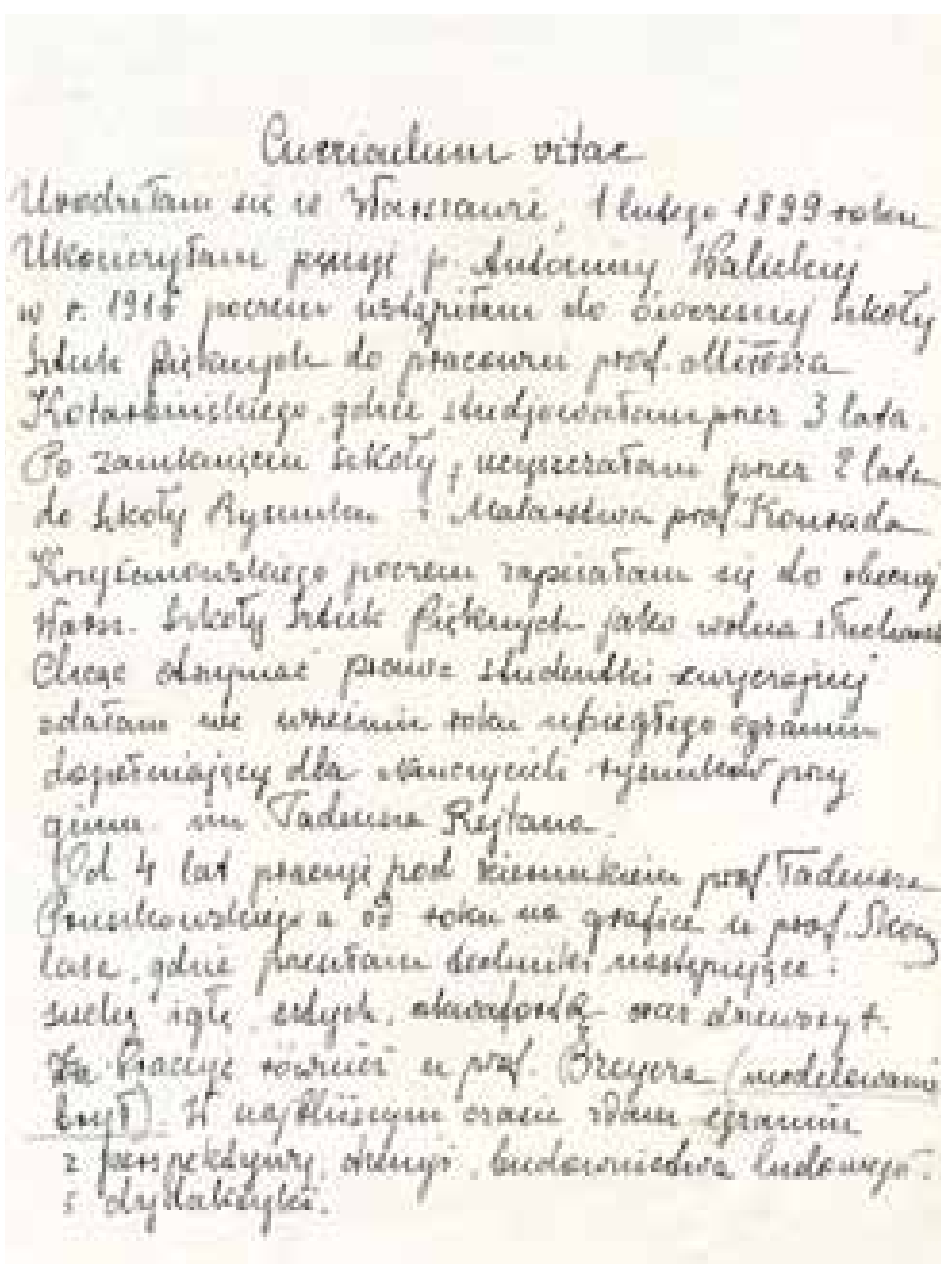 Curriculum vitae
Urodziłam się w Warszawie, 1 lutego 1899 roku
Ukończyłam pensję p. Antoniny Walickiej
w r. 1915 poczem wstąpiłam do ówczesnej szkoły
Sztuk Pięknych do pracowni prof. Miłosza
Kotarbińskiego gdzie studjowałam przez 3 lata.
Po zamknięciu szkoły, uczęszczałam przez 2 lata
do Szkoły Rysunku i Malarstwa prof. Konrada
Krzyżanowskiego poczem zapisałam się do obecnej
Warsz. Szkoły Sztuk Pięknych jako wolna
Chcąc otrzymać prawa studentki zwyczajnej
zdałam we wrześniu roku ubiegłego egzamin
dopełniający dla nauczycieli rysunków przy
gimn. im Tadeusza Rejtana.
Od 4 lat pracuję pod kierunkiem prof. Tadeusza
Pruszkowskiego a od roku na grafice u prof. Skoczy
lasa, gdzie przeszłam techniki następujące:
suchą igłę, sztych, akwafortę oraz drzeworyt.
Pracuję również u prof. Breyera (modelowanie
brył). W najbliższym czasie zdam egzamin
z perspektywy, budownictwa ludowego
i dydaktyki.